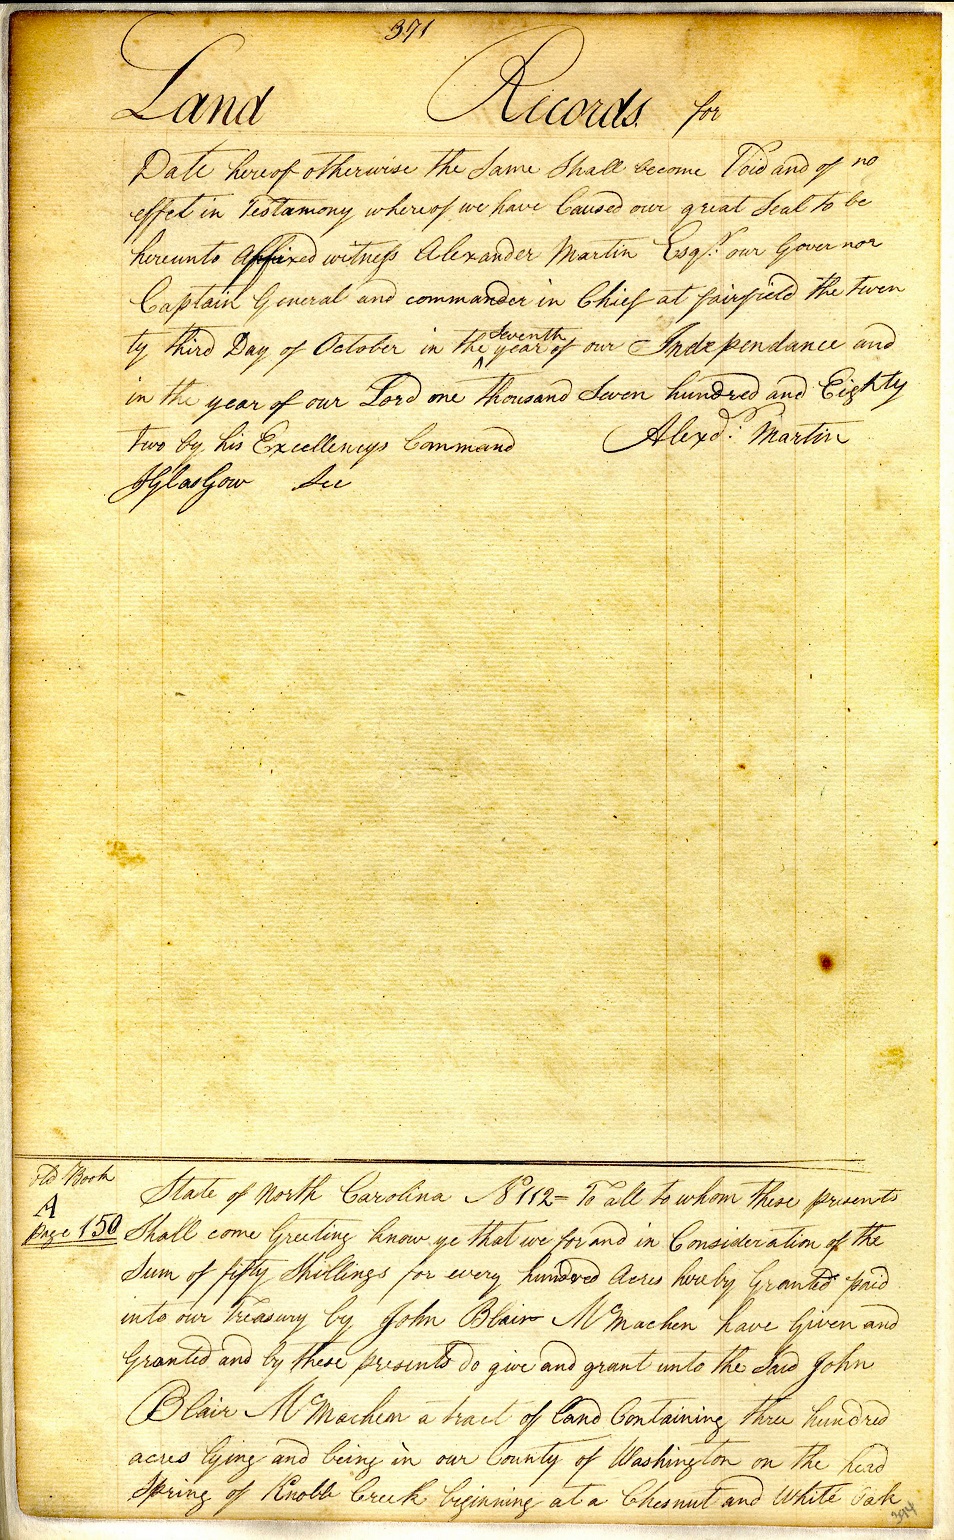 371
Land Records for
Date hereof otherwise the Same Shall become Void and of no
effet in Testamony whereof we have Caused our great Seal to be
hereunto Affixed witness Alexander Martin Esqr. our Governor
Captain General and commander in Chief at fairfield the twen
ty third Day of October in the seventh year of our Independance and
in the year of our Lord one thousand Seven hundred and Eighty
two by his Excellencys Command Alexd. Martin
JGlasGow Sec
old Book
A
page 150
State of North Carolina No 112 = To all to whom these presents
Shall come Greeting know ye that we for and in Consideration of the
Sum of fifty Shillings for every hundred Acres hereby Granted paid
into our Treasury by John Blair McMachen have Given and
Granted and by these presents do give and grant unto the Said John
Blair McMachen a tract of land Containing three hundred
acres lying and being in our County of Washington on the head
Spring of Knobb Creek beginning at a Chesnut and White Oak
394